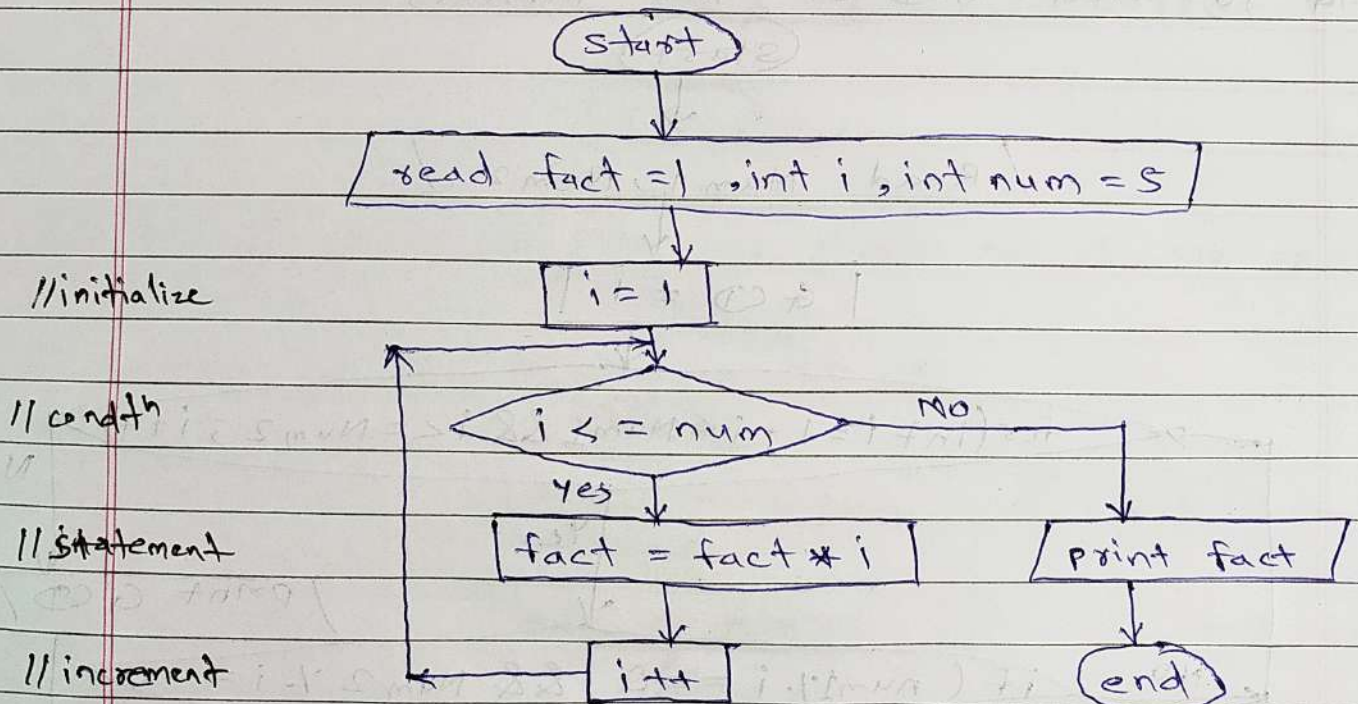 start
read fact = 1, int i, int num = 5
//initialize i = 1
// condtn i <= num NO
yes
// statement fact = fact * i print fact
// increment i++ end